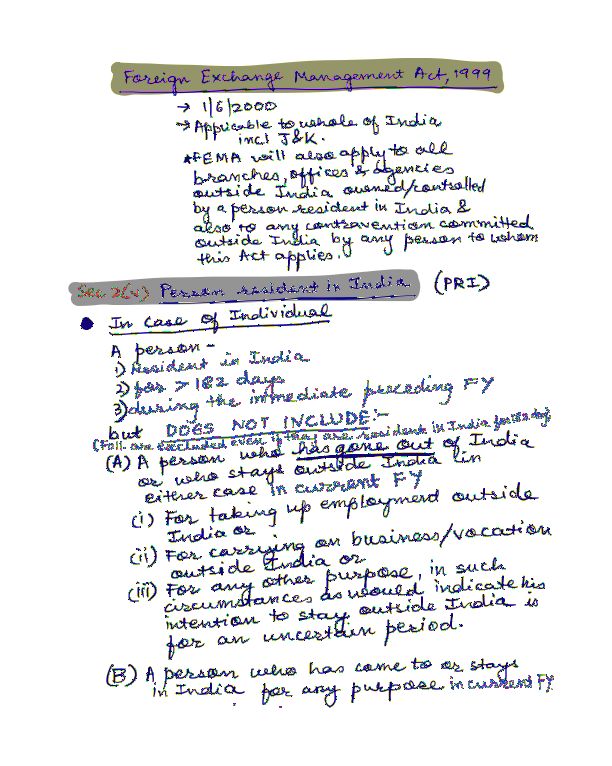 Foreign Exchange Management Act, 1999
→ 1/6/2000
→ Applicable to whole of India
incl J&K.
*FEMA will also apply to all
branches, offices & agencies
outside India owned/controlled
by a person resident in India &
also to any contravention committed
outside India by any person to whom
this Act applies.
Sec 2(v) Person resident in India (PRI)
• In case of Individual
A person -
1) Resident in India
2) for > 182 days
3) during the immediate preceding FY
but DOES NOT INCLUDE:-
(Foll. are excluded even if they are resident in India for 182 days)
(A) A person who has gone out of India
or who stays outside India (in
either case in current FY
(i) For taking up employment outside
India or
(ii) For carrying on business/vocation
outside India or
(iii) For any other purpose, in such
circumstances as would indicate his
intention to stay outside India is
for an uncertain period.
(B) A person who has come to or stays
in India for any purpose in current FY